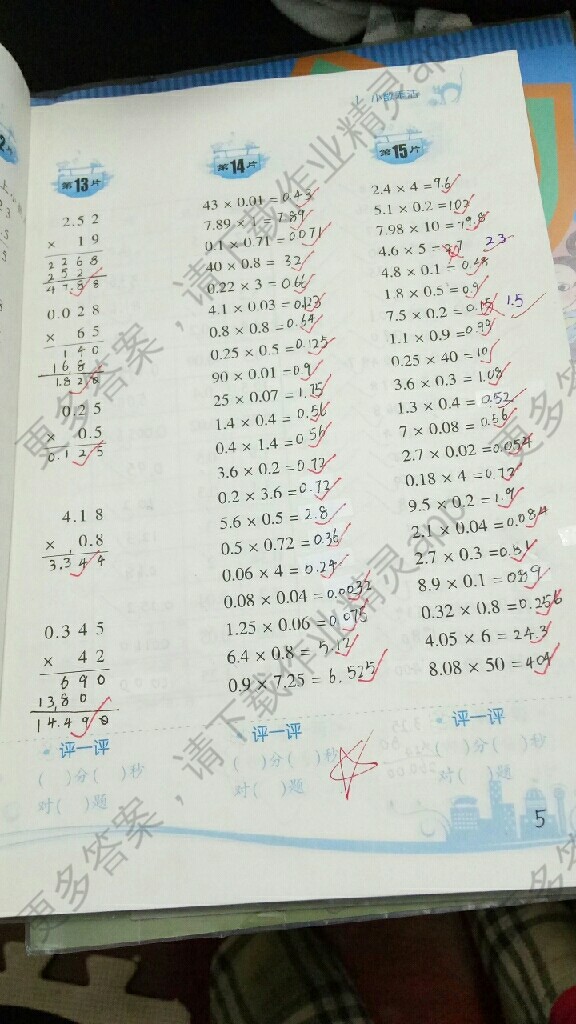 1 小数乘法
第13片
2.52
× 19
2268
252
47.88
0.028
× 65
140
168
1.820
0.25
× 0.5
0.125
4.18
× 0.8
3.344
0.345
× 42
690
1380
14.490
评一评
( )分( )秒
对( )题
第14片
43 × 0.01 = 0.43
7.89 × 1 = 7.89
0.1 × 0.71 = 0.071
40 × 0.8 = 32
0.22 × 3 = 0.66
4.1 × 0.03 = 0.123
0.8 × 0.8 = 0.64
0.25 × 0.5 = 0.125
90 × 0.01 = 0.9
25 × 0.07 = 1.75
1.4 × 0.4 = 0.56
0.4 × 1.4 = 0.56
3.6 × 0.2 = 0.72
0.2 × 3.6 = 0.72
5.6 × 0.5 = 2.8
0.5 × 0.72 = 0.36
0.06 × 4 = 0.24
0.08 × 0.04 = 0.0032
1.25 × 0.06 = 0.075
6.4 × 0.8 = 5.12
0.9 × 7.25 = 6.525
评一评
( )分( )秒
对( )题
第15片
2.4 × 4 = 9.6
5.1 × 0.2 = 1.02
7.98 × 10 = 79.8
4.6 × 5 = 23
4.8 × 0.1 = 0.48
1.8 × 0.5 = 0.9
7.5 × 0.2 = 0.15 1.5
1.1 × 0.9 = 0.99
0.25 × 40 = 10
3.6 × 0.3 = 1.08
1.3 × 0.4 = 0.52
7 × 0.08 = 0.56
2.7 × 0.02 = 0.054
0.18 × 4 = 0.72
9.5 × 0.2 = 1.9
2.1 × 0.04 = 0.084
2.7 × 0.3 = 0.81
8.9 × 0.1 = 0.89
0.32 × 0.8 = 0.256
4.05 × 6 = 24.3
8.08 × 50 = 404
评一评
( )分( )秒
对( )题
5
更多答案，请下载作业精灵app
更多答案，请下载作业精灵app